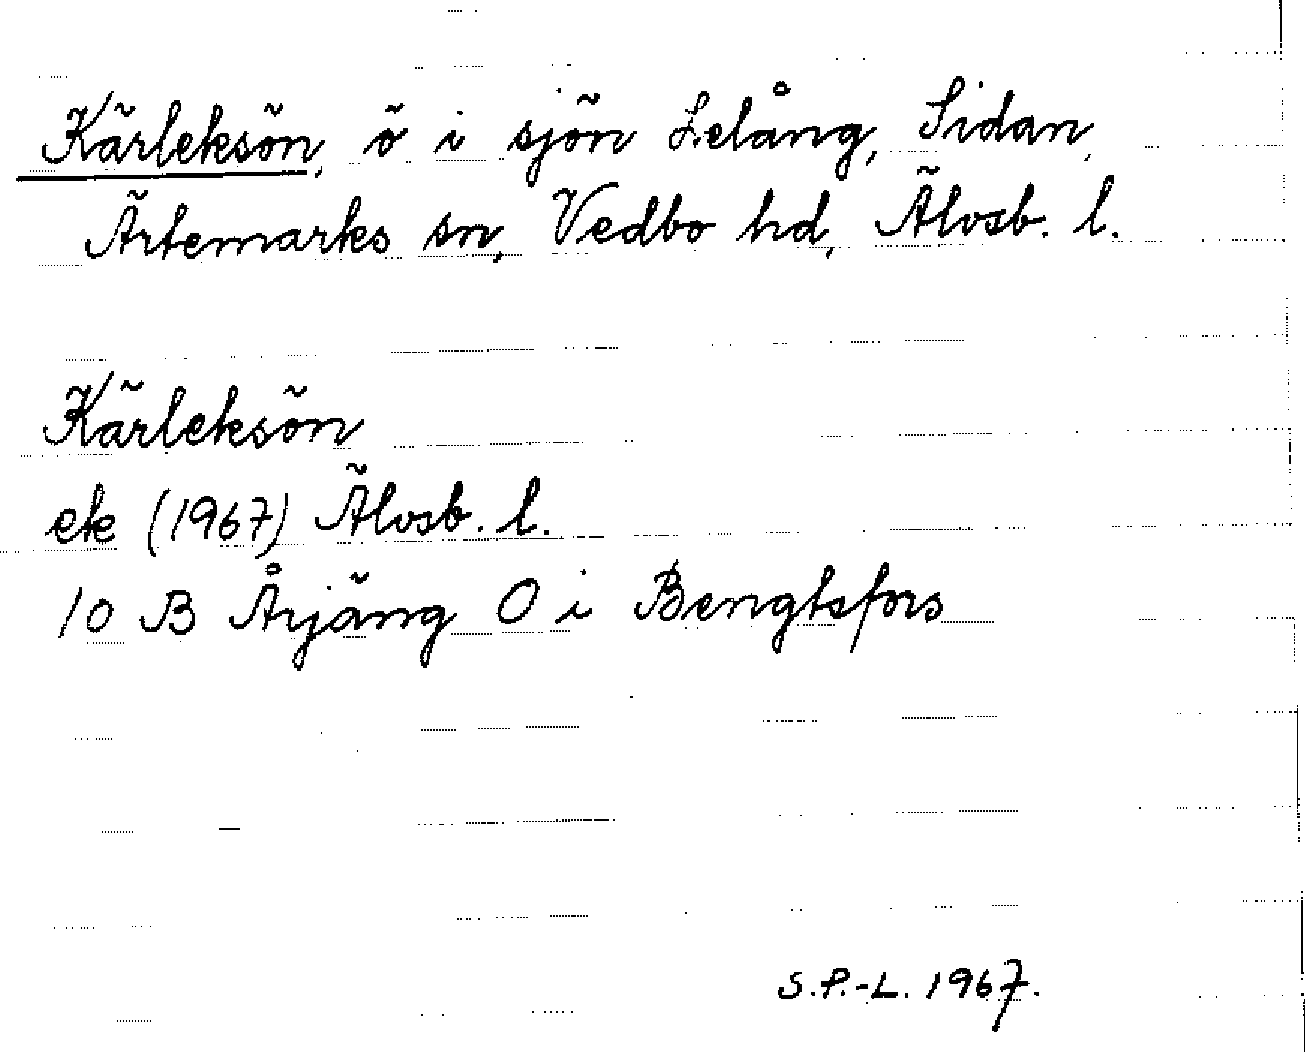 Kärleksön, ö i sjön Lelång, Sidan,
Ärtemarks sn, Vedbo hd, Älvsb. l.
Kärleksön
ek (1967) Älvsb. l.
10 B Årjäng O i Bengtsfors
S.P.-L. 1967.